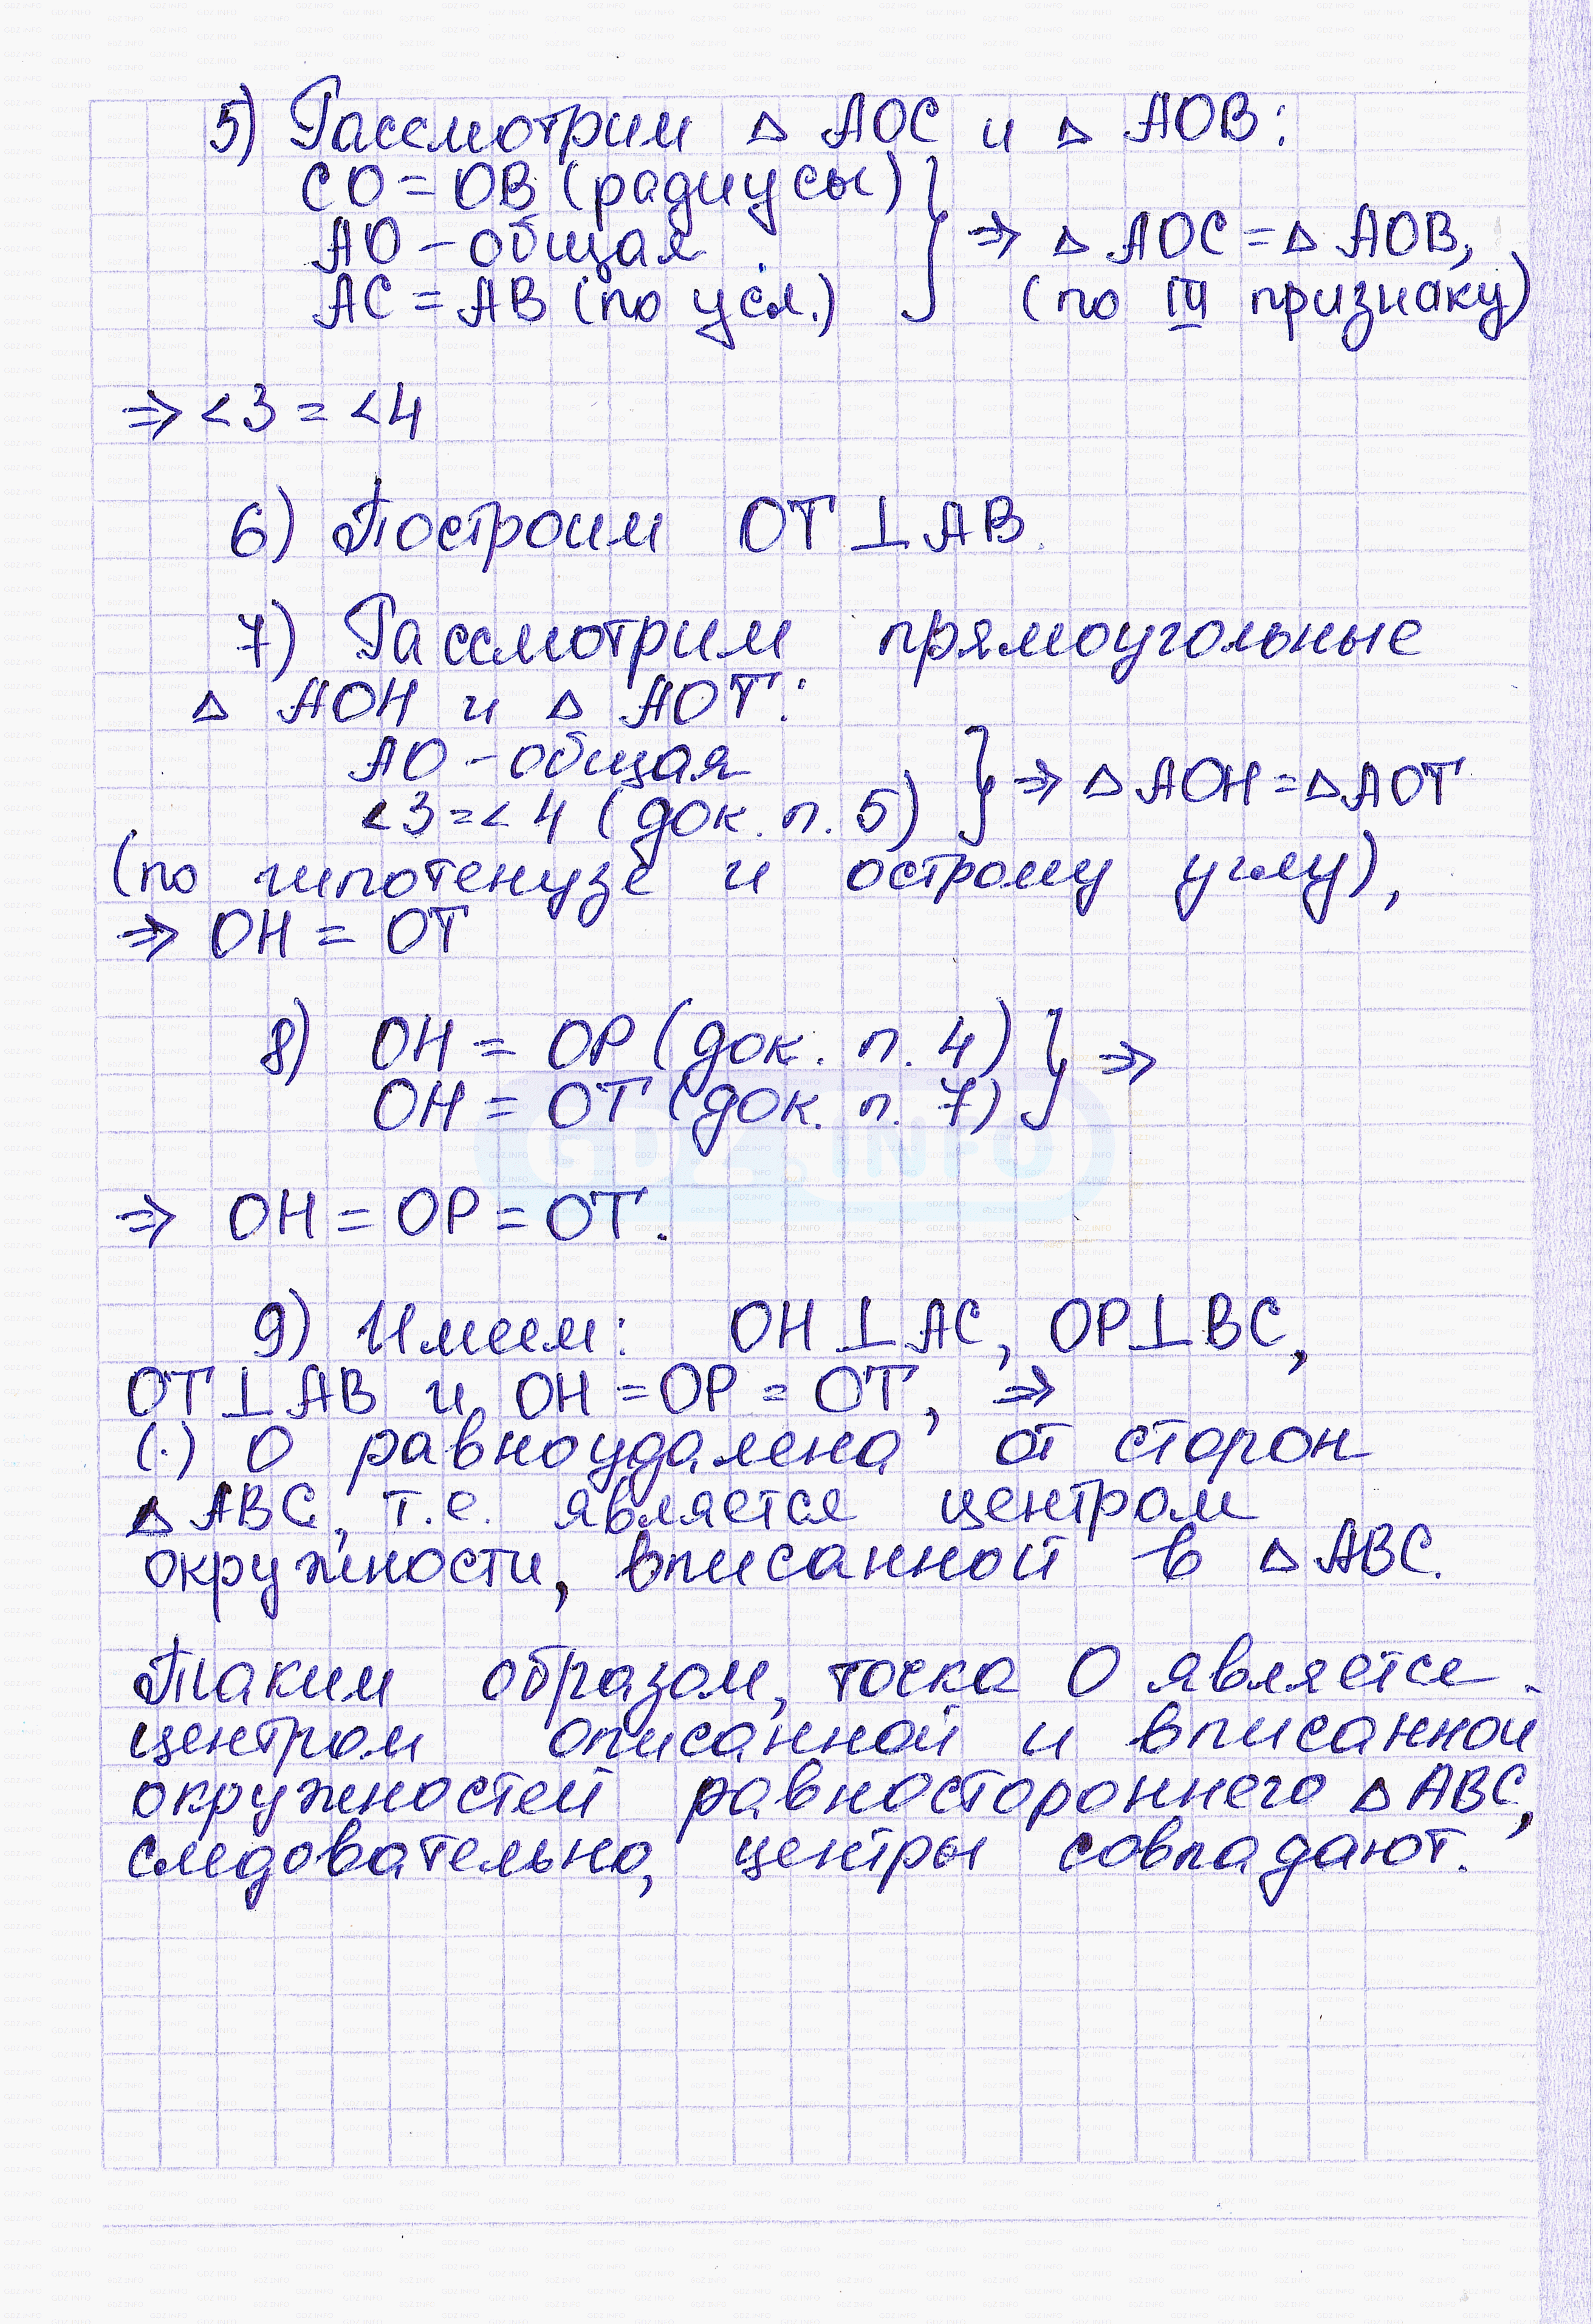 5) Рассмотрим △ AOC и △ AOB:
CO = OB (радиусы)
AO – общая
AC = AB (по усл.)
⇒ △ AOC = △ AOB,
(по III признаку)
⇒ <3 = <4
6) Построим OT ⊥ AB.
7) Рассмотрим прямоугольные
△ AOH и △ AOT:
AO – общая
<3 = <4 (док. п. 5)
} ⇒ △ AOH = △ AOT
(по гипотенузе и острому углу),
⇒ OH = OT
8) OH = OP (док. п. 4)
OH = OT (док. п. 7)
} ⇒
GDZ.INFO
⇒ OH = OP = OT.
9) Имеем: OH ⊥ AC, OP ⊥ BC,
OT ⊥ AB и OH = OP = OT, ⇒
(·) O равноудалена от сторон
△ ABC, т.е. является центром
окружности, вписанной в △ ABC.
Таким образом, точка O является
центром описанной и вписанной
окружностей равностороннего △ ABC,
следовательно, центры совпадают.